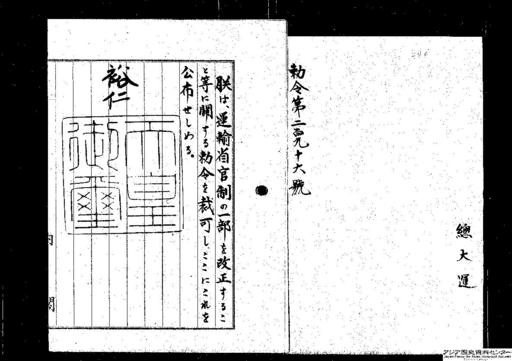 總
大
運
勅令第二百九十六號
朕は、運輸省官制の一部を改正するこ
と等に關する勅令を裁可し、ここにこれを
公布せしめる。
裕仁
天皇
御璽
内閣
アジア歴史資料センター